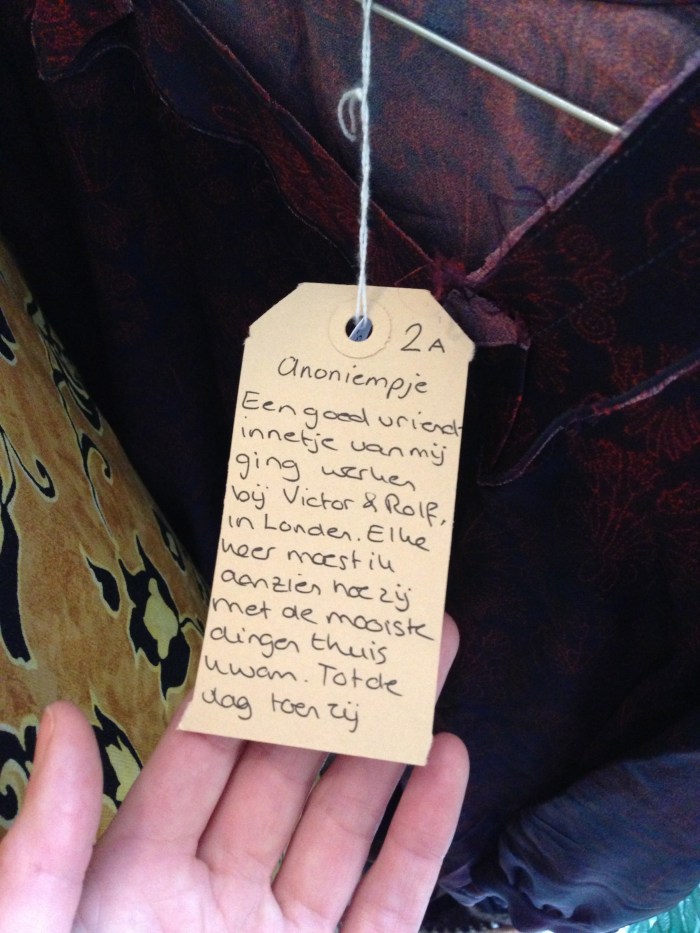 2A
Anoniempje
Een goed vriend-
innetje van mij
ging werken
bij Victor & Rolf,
in Londen. Elke
keer moest ik
aanzien hoe zij
met de mooiste
dingen thuis
kwam. Tot de
dag toen zij